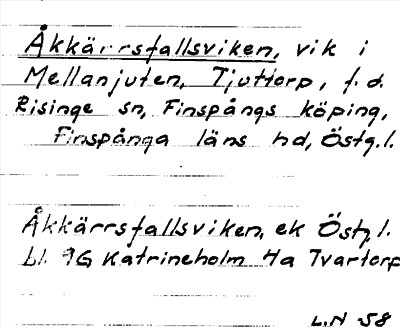 Åkkärrsfallsviken, vik i
Mellanjuten, Tjuttorp, f.d.
Risinge sn, Finspångs köping,
Finspånga läns hd, Östg.l.
Åkkärrsfallsviken, ek Östg.l.
bl. 9G Katrineholm 4a Tvartorp
L.N 58